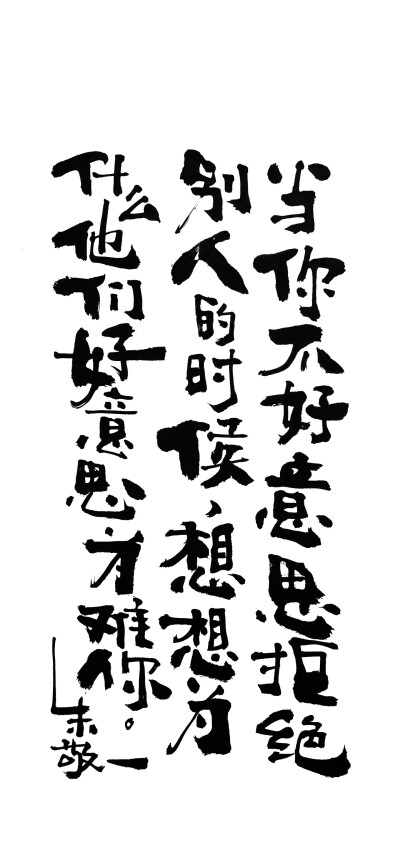 当你不好意思拒绝
别人的时候，想想为
什么他们好意思为难你。
朱敬一